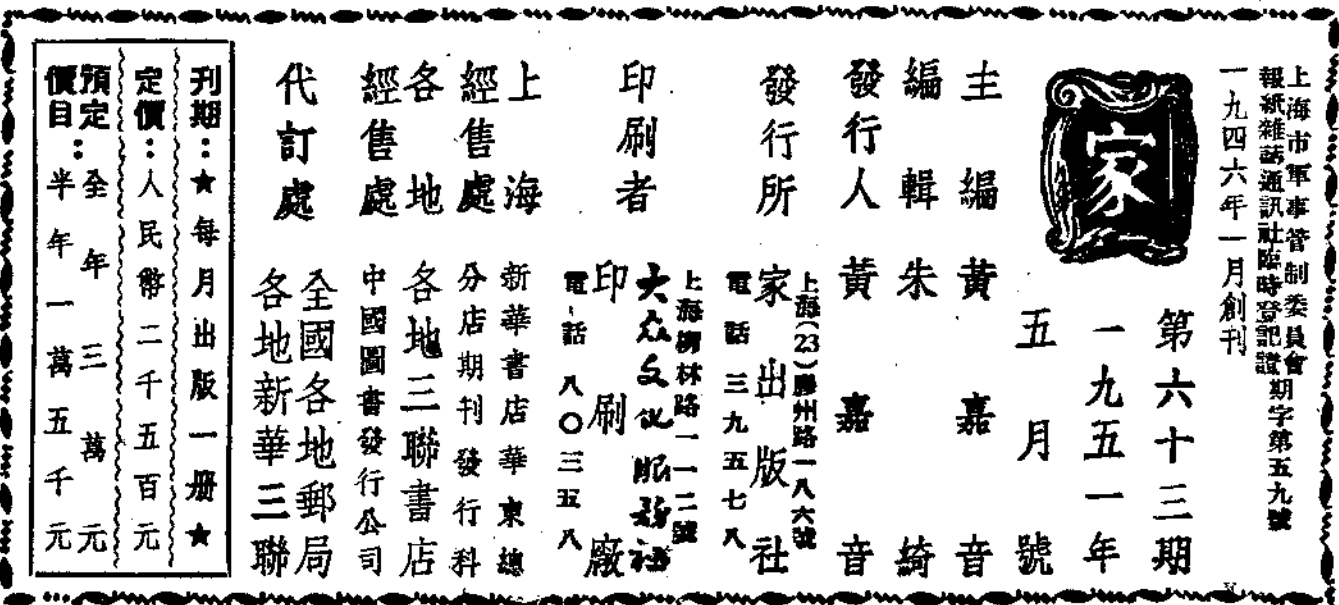 上海市軍事管制委員會
報紙雜誌通訊社臨時登記證期字第五九號
一九四六年一月創刊
家
第六十三期
一九五一年
五月號
主編黃嘉音
編輯朱綺
發行人黃嘉音
發行所
上海(23)膠州路一八六號
家出版社
電話三九五七八
印刷者
上海柳林路一一二號
大众文化服務社
印刷廠
電話八〇三五八
上海
經售處
新華書店華東總
分店期刊發行科
各地
經售處
各地三聯書店
中國圖書發行公司
代訂處
全國各地郵局
各地新華三聯
刊期：★每月出版一册★
定價：人民幣二千五百元
預定
價目：
全年三萬元
半年一萬五千元